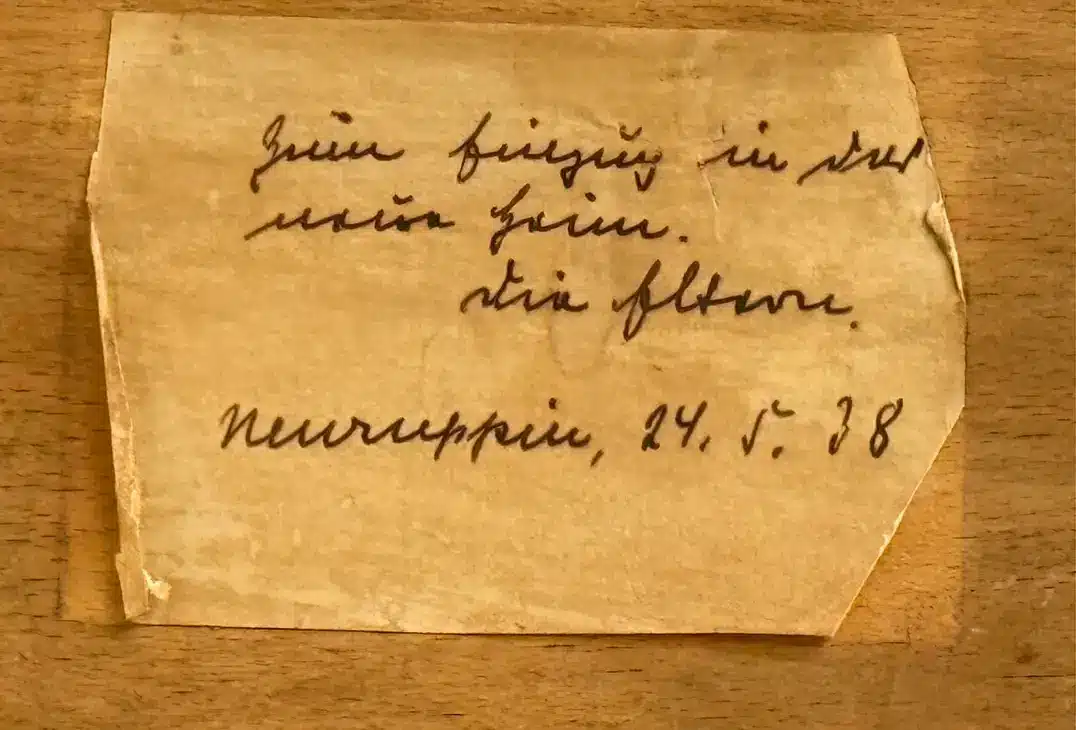 Zum Einzug in das
neue Heim.
Die Eltern.
Neuruppin, 24. 5. 38